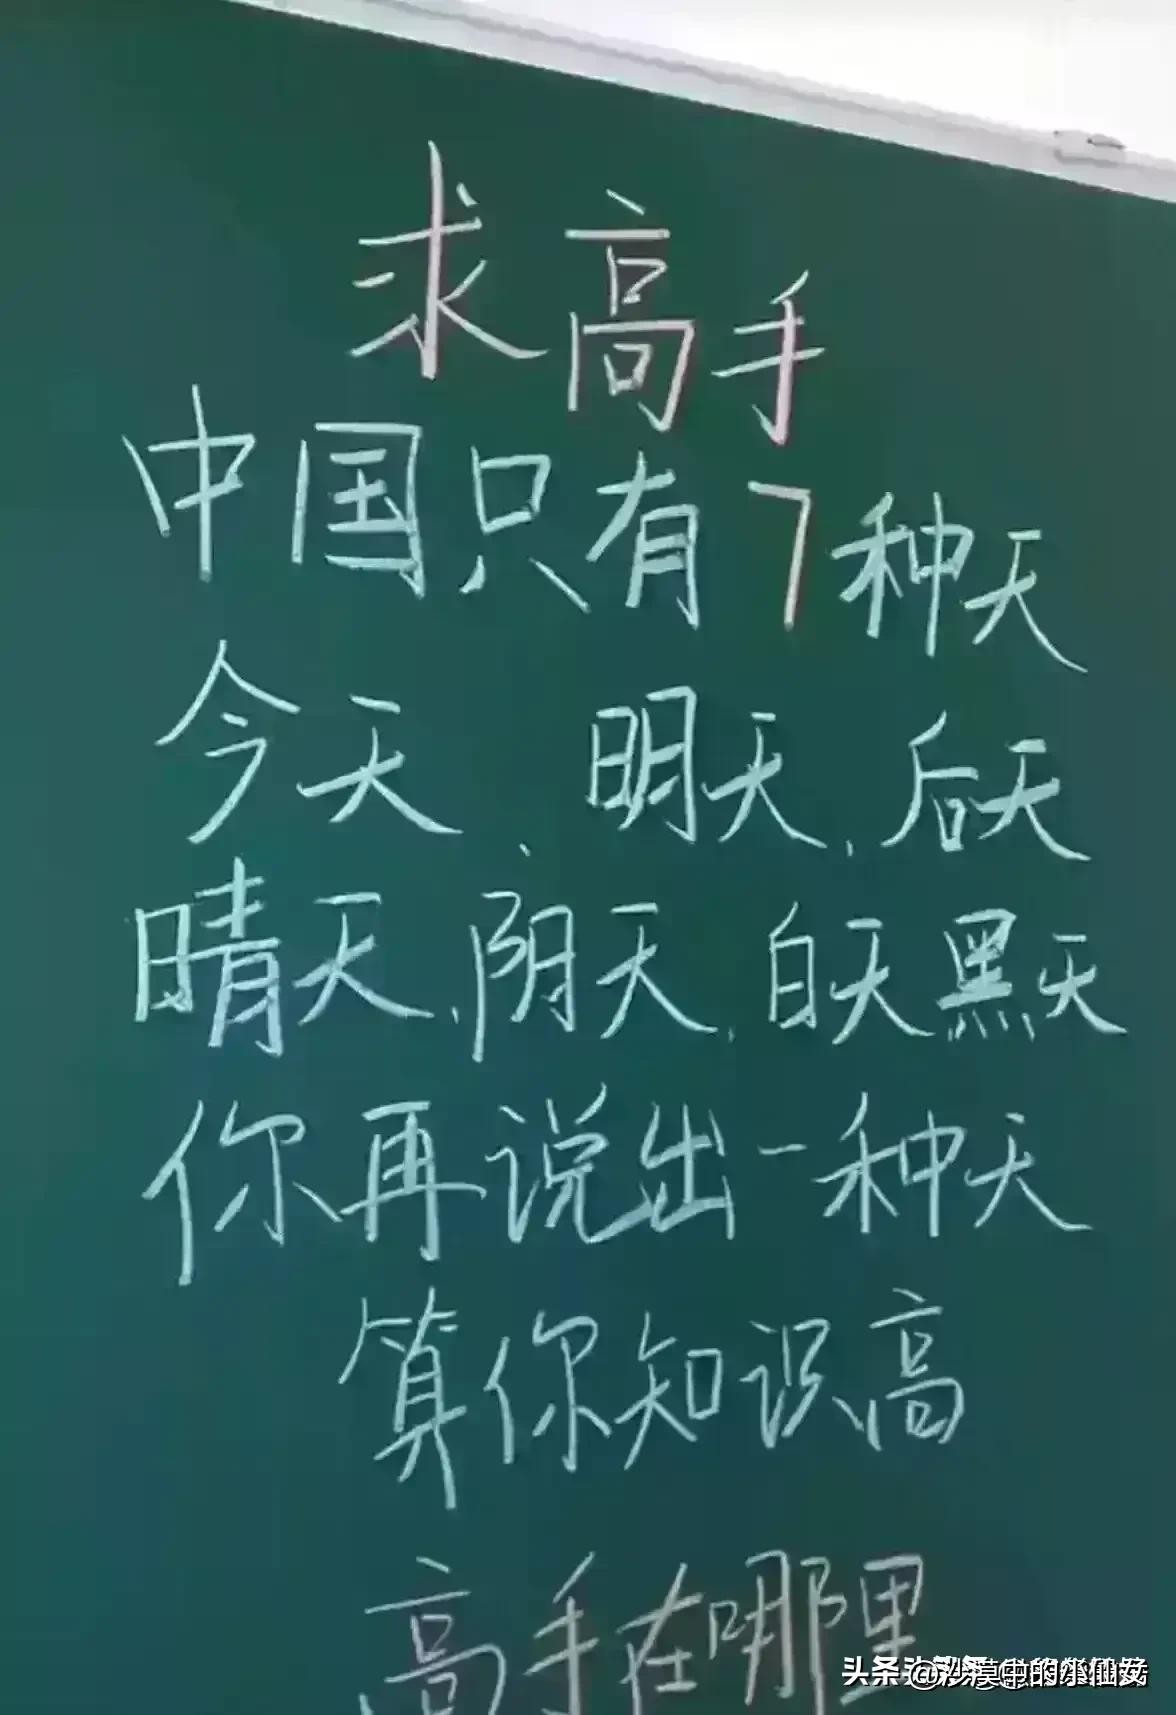 求高手
中国只有7种天
今天、明天、后天
晴天、阴天、白天黑天
你再说出一种天
算你知识高
高手在哪里